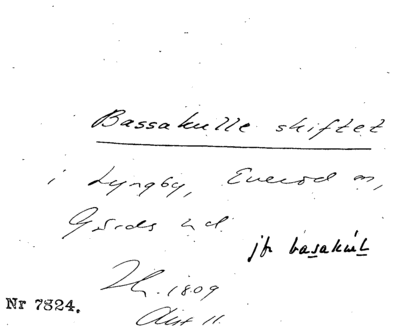 Bassakulle skiftet
i Lyngby, Everöd sn,
Gärds hd.
jfr basakúl
1809
Nr 7824.
Akt 11.